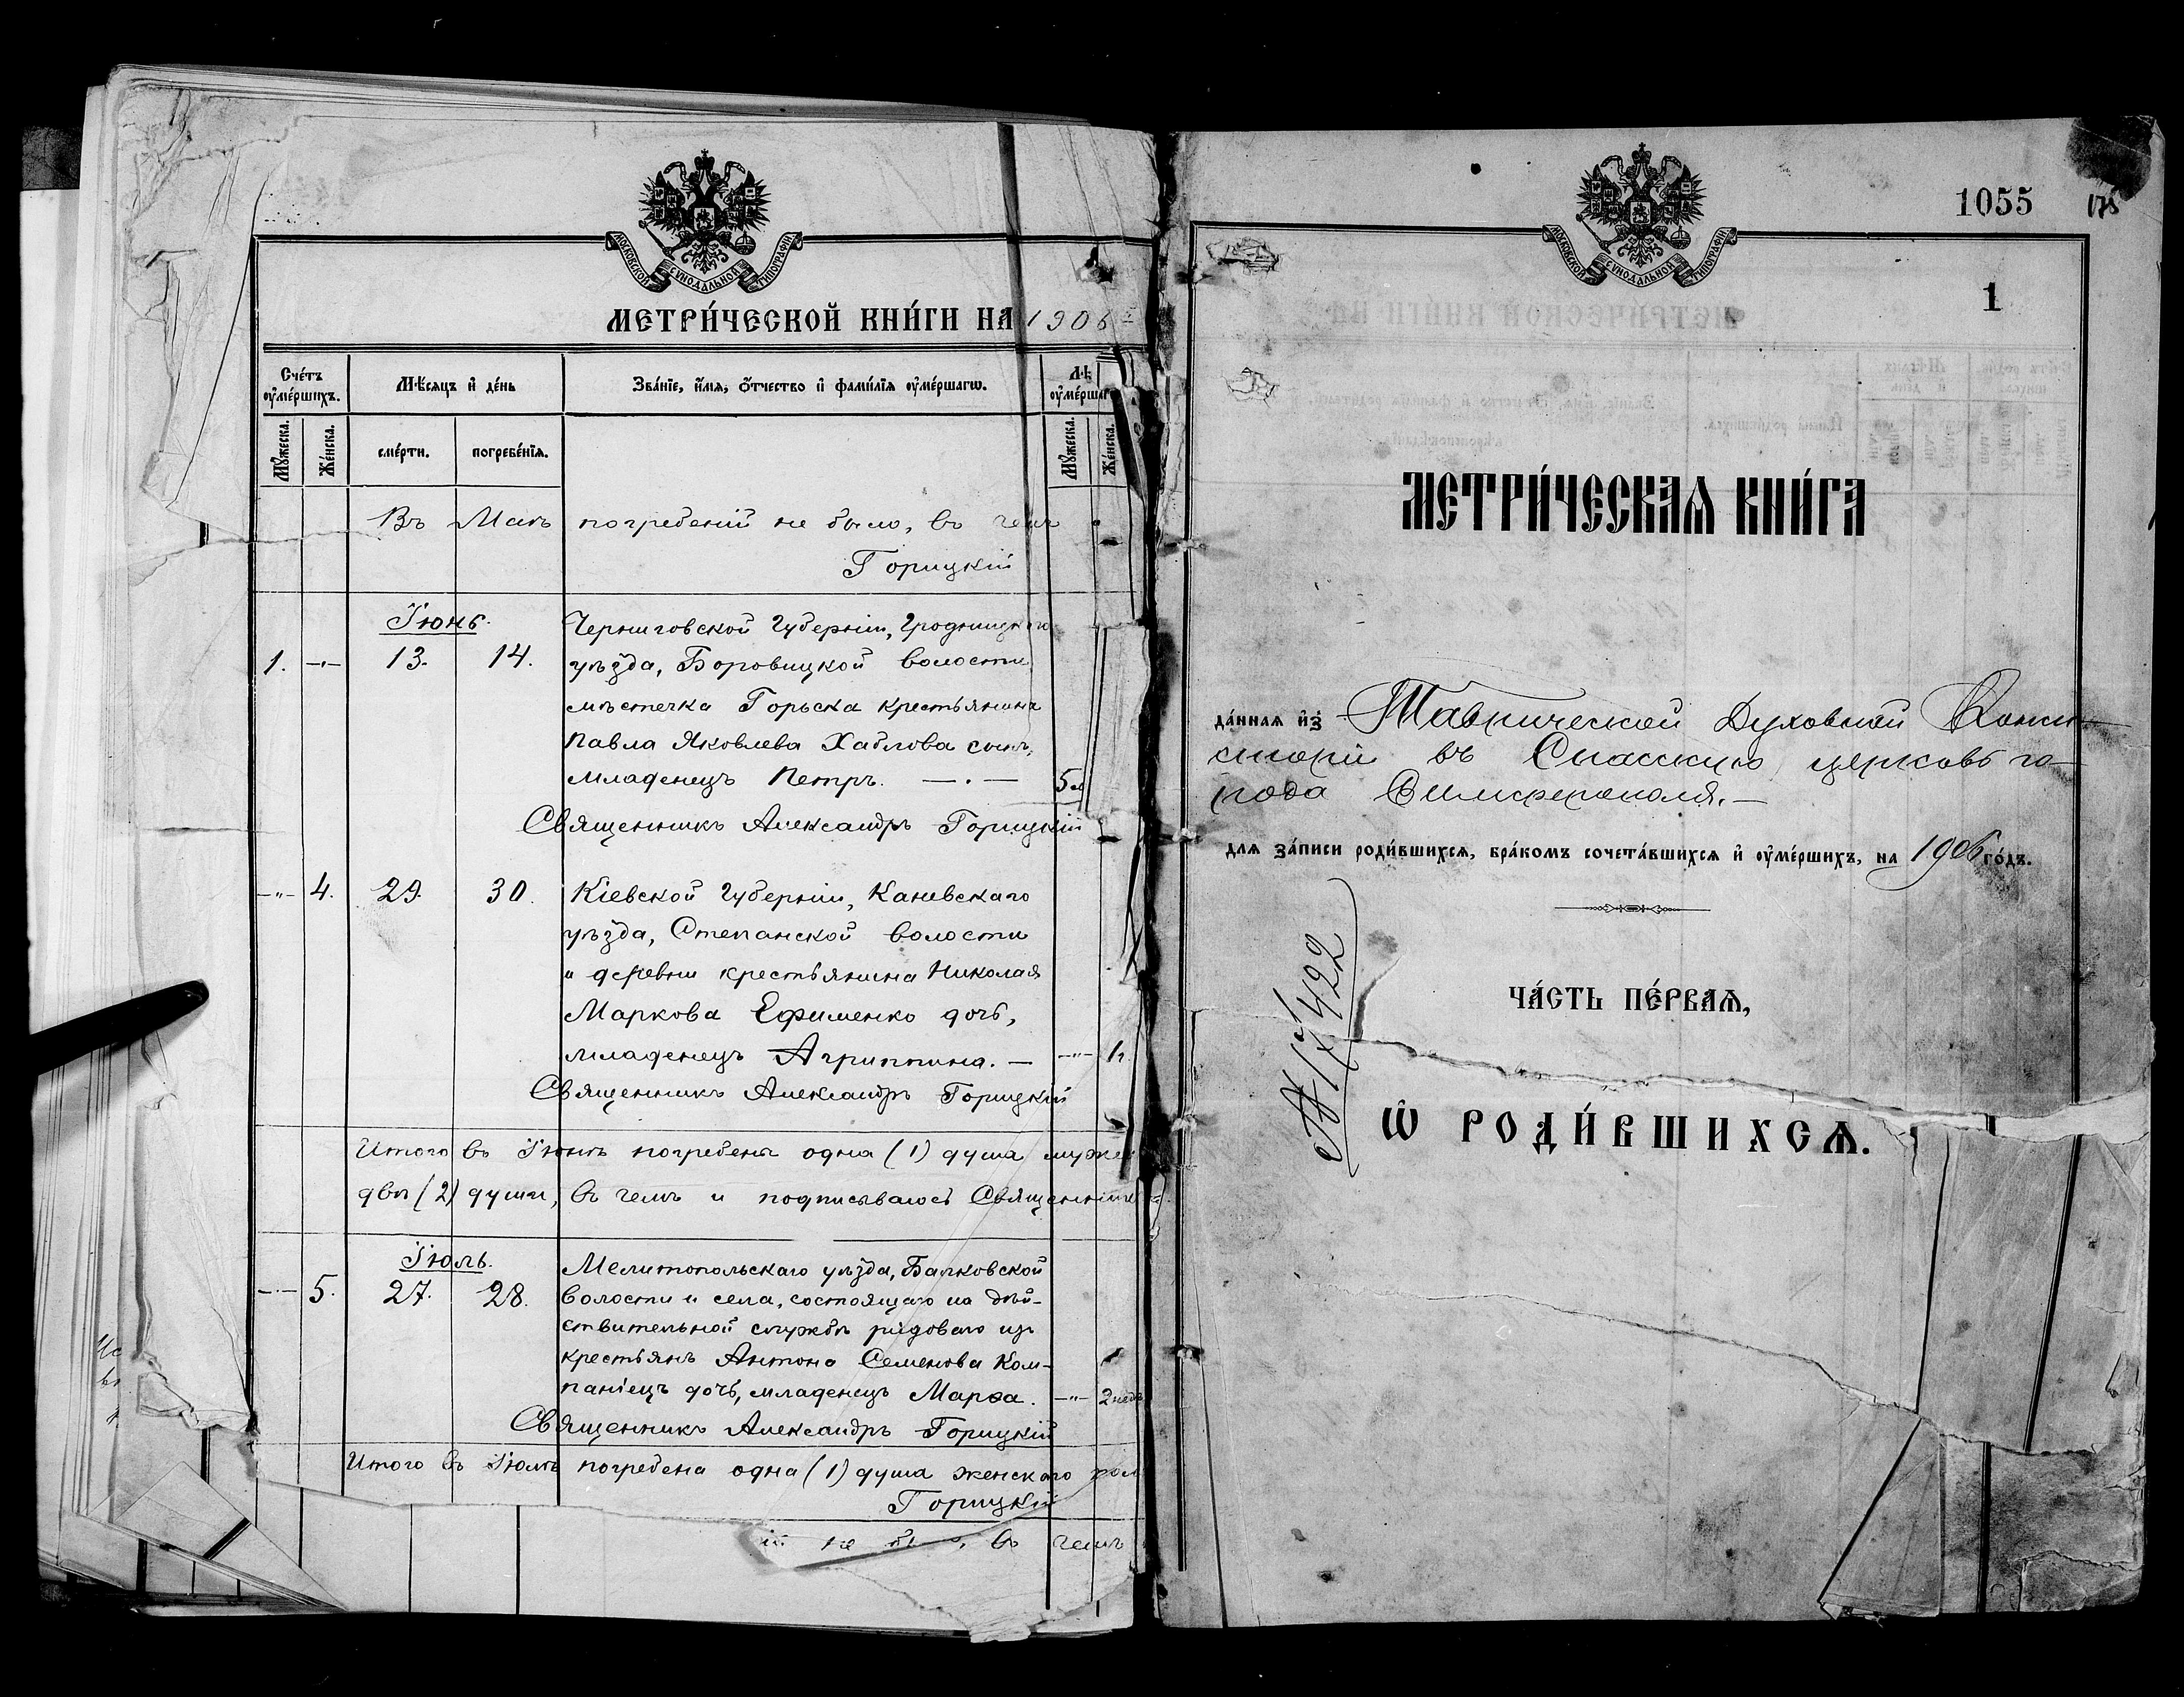 МОСКОВСКОЙ СѴНОДАЛЬНОЙ ТИПОГРАФІИ
МЕТРИ́ЧЕСКОЙ КНИ́ГИ НА 1906
Сче́тъ оу҆ме́ршихъ.
Мѣ́сяцъ и҆ де́нь
Зва́нїе, и҆́мѧ, ѻ҆́тчество и҆ фами́лїѧ оу҆ме́ршагѡ.
Лѣ
оу҆ме́ршаг
Мꙋ́жеска.
Же́нска.
сме́рти.
погребе́нїѧ.
Мꙋ́жеска.
Же́нска.
Въ Маѣ погребеній не было, въ чемъ
Горицкій
Іюнь.
Черниговской губерніи, Гродницкаго
1. —"— 13. 14. уѣзда, Боровицкой волости
мѣстечка Горьска крестьянина
Павла Яковлева Хаблова сынъ,
младенецъ Петръ. — . — 5
Священникъ Александръ Горицкій
—"— 4. 29. 30. Кіевской губерніи, Каневскаго
уѣзда, Степанской волости
и деревни крестьянина Николая
Маркова Ефименко дочь,
младенецъ Агриппина. — —"— 1 г.
Священникъ Александръ Горицкій
Итого въ Іюнѣ погребена одна (1) душа мужес
двѣ (2) души, въ чемъ и подписываюсь Священни
Іюль.
Мелитопольскаго уѣзда, Балковской
—"— 5. 27. 28. волости и села, состоящаго на дѣй-
ствительной службѣ рядового изъ
крестьянъ Антона Семенова Ком-
паніецъ дочь, младенецъ Марѳа. —"— 2 нед
Священникъ Александръ Горицкій
Итого въ Іюлѣ погребена одна (1) душа женскаго пол
Горицкій
не бы , въ чемъ
МОСКОВСКОЙ СѴНОДАЛЬНОЙ ТИПОГРАФІИ
1055 175
1
МЕТРИ́ЧЕСКАѦ КНИ́ГА
да́нная и҆з̾ Таврической Духовной Конси-
сторіи въ Спасскую церковь го-
рода Симферополя. —
для за́писи роди́вшихсѧ, бра́комъ сочета́вшихсѧ и҆ оу҆ме́ршихъ, на 1906 го́дъ.
№ 17422
ЧА́СТЬ ПЕ́РВАѦ,
Ѡ҆ РОДИ́ВШИХСѦ.